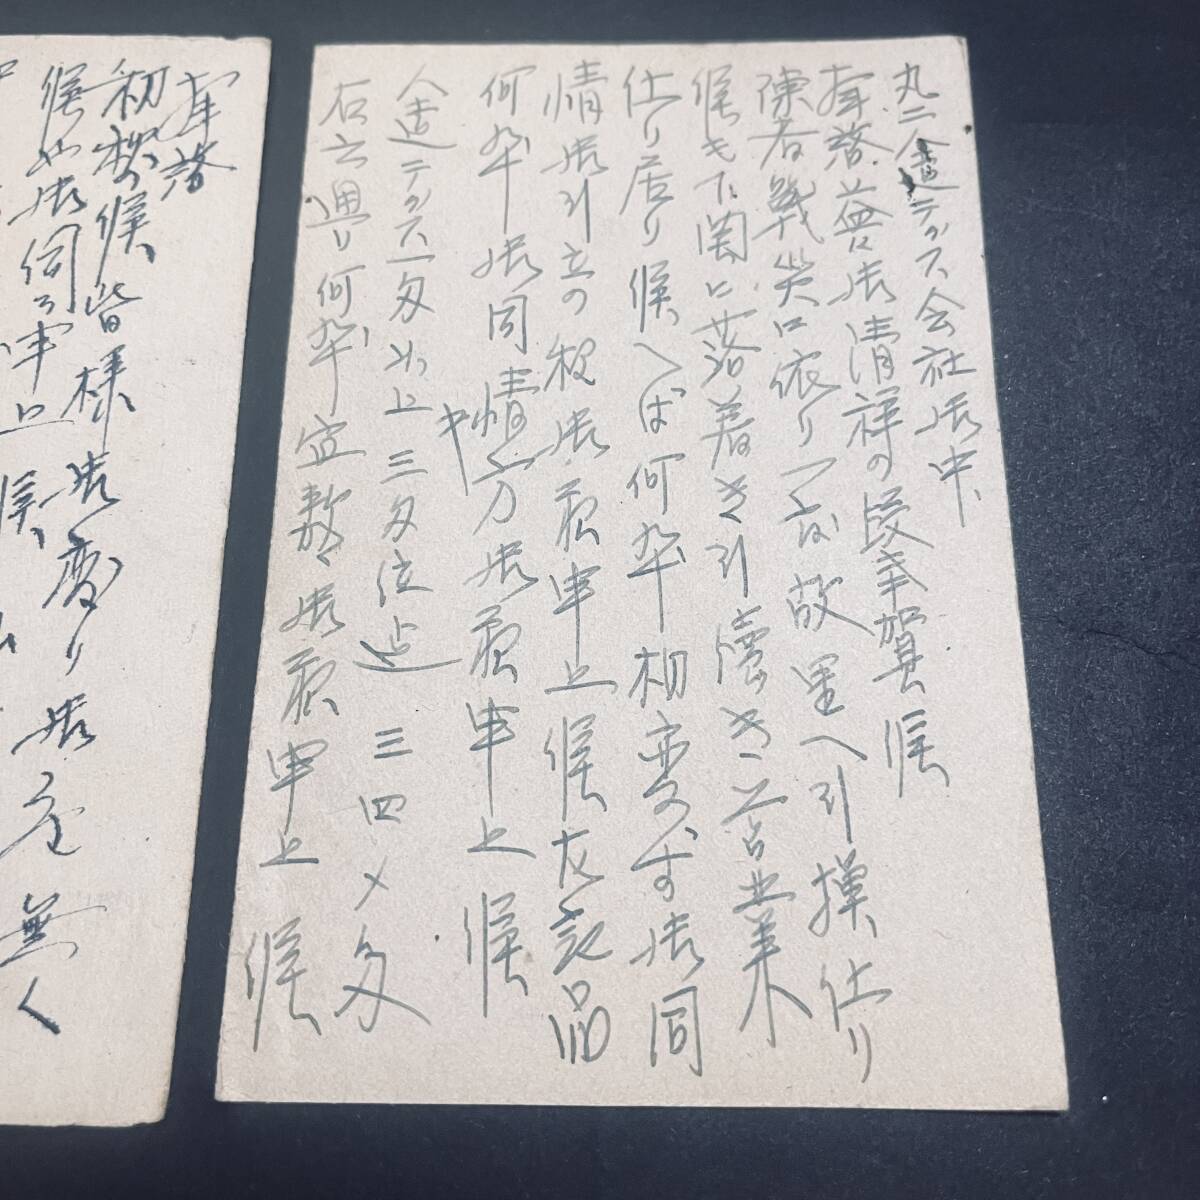 丸二人造テグス会社御中、
拝啓益々御清祥の段奉賀候
陳者戦災に依り一度故里へ引揚仕り
候も下関に落着き引続き営業
仕り居り候へば何卒相変らず御同
情御引立の程御願申上候左記品
何卒御同情ヲ以御願申上候
人造テグス一匁以上三匁位迄 三四〆匁
右之通り何卒宜敷御願申上候
拝啓
初秋の候皆様御変り御座無く
候也御伺ヲ申上候